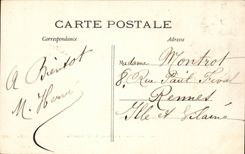 CARTE POSTALE
Correspondance
Adresse
A Bientot
M Hervé
Madame Montrot
8, Rue Paul Féval
Rennes
Ille et Vilaine